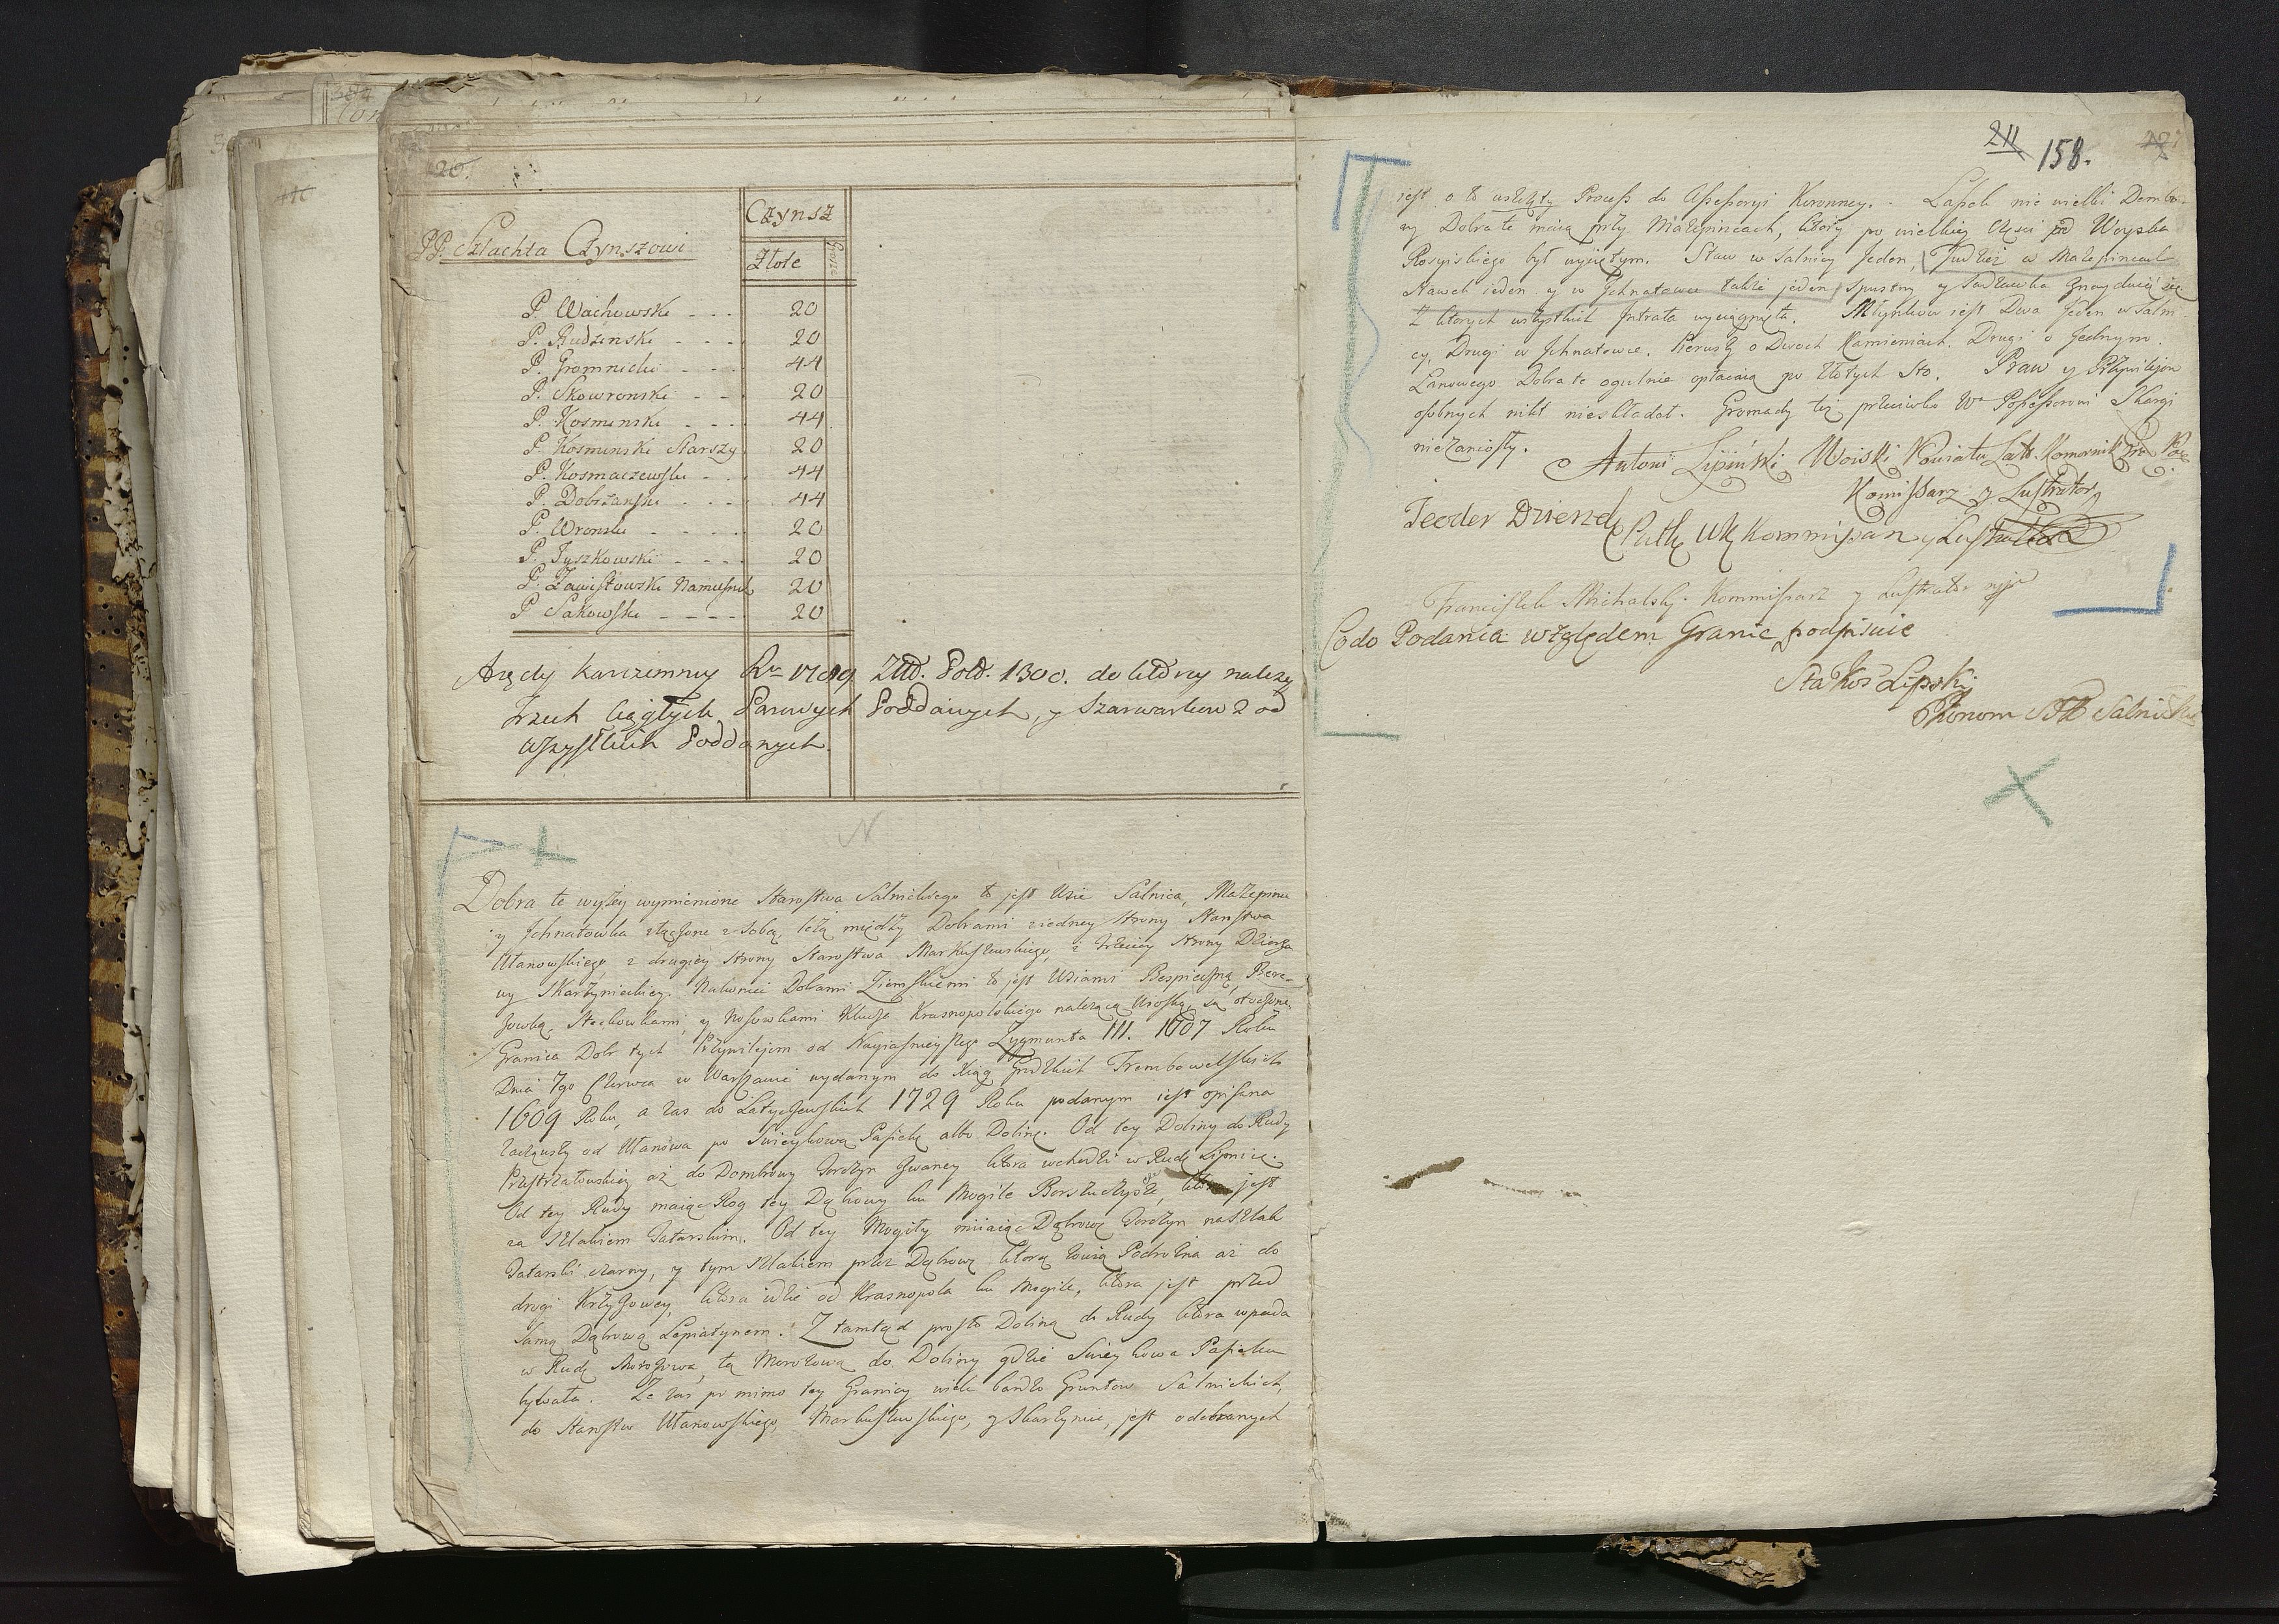 20.
PP. Szlachta Czynszowi
Czynsz
Złote
P. Wachowski - - - 20
P. Rudzinski - - - 20
P. Gromnicki - - - 44
P. Skowronski - - 20
P. Kosminski - - - 44
P. Kosminski Starszy 20
P. Kosmaczewski - - 44
P. Dobrzanski - - - 44
P. Wronski - - - - 20
P. Jyszkowski - - - 20
P. Zawistowski 20
P Sakowski - - - - 20
Arędy karczemney Ru 1789 Złtt. Poltt. 1300. do ktorey należy
Trzech Ciągłych Parowych Poddanych, y Szarwarkow 2 od
wszystkich Poddanych.
Dobra te wyżey wymienione Starostwa Salnickiego to jest Wsie Salnica, Mazepince
y Jchnatowka złączone z sobą, leżą między Dobrami z iedney strony Starostwa
Ułanowskiego, z drugiey strony Starostwa Markuszewskiego, z trzeciey strony Dzierża
wy Skarżynieckiey. Nakoniec Dobrami Ziemskiemi to jest Wsiami Bespieczną, Bere-
zowką, Stechowkami, y Nosowkami Klucza Krasnopolskiego należącą Wioską są otoczone.
Granica Dobr tych Przywilejem od Nayiaśnieyszego Zygmunta III. 1607 Roku
Dnia 7go Czerwca w Warszawie wydanym do Xiąg Grodzkich Trembowelskich
1609 Roku, a zas do Latyczewskich 1729 Roku podanym jest opisana
zacząwszy od Ułanowa po Swieykową Pasiekę albo Dolinę. Od tey Doliny do Rudy
aż do Dombrowy Torczyn zwaney ktora wchodzi w Rudę Lipnicę.
Od tey Rudy maiąc Rog tey Dąbrowy ku Mogile ktora jest
za Szlakiem Tatarskim. Od tey Mogiły miiaiąc Dąbrowę Torczyn na Szlak
Tatarski czarny, y tym Szlakiem przez Dąbrowę ktorą zowią Podrożna aż do
drogi Krzyżowey, ktora idzie od Krasnopola ku Mogile, ktora jest przed
samą Dąbrową Lepiatynem. Z tamtąd prosto Doliną do Rudy ktora wpada
w Rudę Morozowa, tą Morozową do Doliny gdzie Swieykowa Pasieka
bywała. Ze zas po mimo tey Granicy wiele bardzo Gruntow Salnickich,
do Starostw Ułanowskiego, Markuszewskiego, y Skarżyniec, jest odebranych
211
158.
jest o to wszczęty Process do Assessoryi Koronney. - Lasek nie wielki Dembo-
wy Dobra te maią przy Mazepincach, ktory po wielkiey częsci od Woyska
Rosyiskiego był wyciętym. Staw w Salnicy Jeden, Tudzież w Mazepincach
Stawek ieden y w Jchnatowce także jeden, Spustny y Sadzawka znayduie się
z ktorych wszystkich Intrata wyciągnięta. Młynkow jest Dwa Jeden w Salni
cy, Drugi w Jchnatowce. Pierwszy o Dwoch Kamieniach. Drugi o Jednym.
Łanowego Dobra te ogulnie opłacaią po Złotych Sto. Praw y Przywilejow
osobnych nikt nieskładał. Gromady też przeciwko Wu Possessorowi Skargi
niezaniosły.
Antoni Lipinski Woiski Powiatu Lat. Komornik
Komissarz y Lustrator
Teodor Kommissarz y Lustrator
Franciszek Michalski Kommissarz y Lustrator
Co do Podania względem Granic podpisuie
Lipski
Ekonom Salnicki